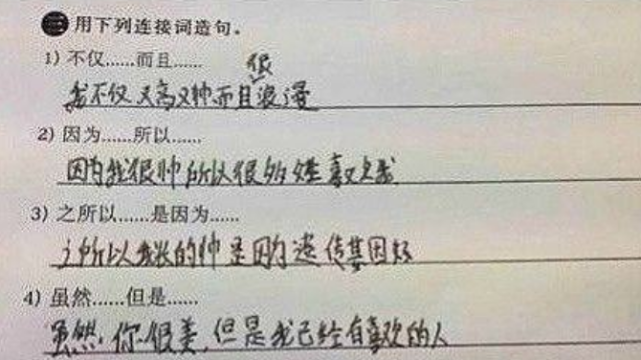 三 用下列连接词造句。
1) 不仅……而且……
我不仅又高又帅而且很浪漫
2) 因为……所以……
因为我很帅所以很多娃喜欢我
3) 之所以……是因为……
之所以我长的帅是因为遗传基因好
4) 虽然……但是……
虽然你很美,但是我已经有喜欢的人